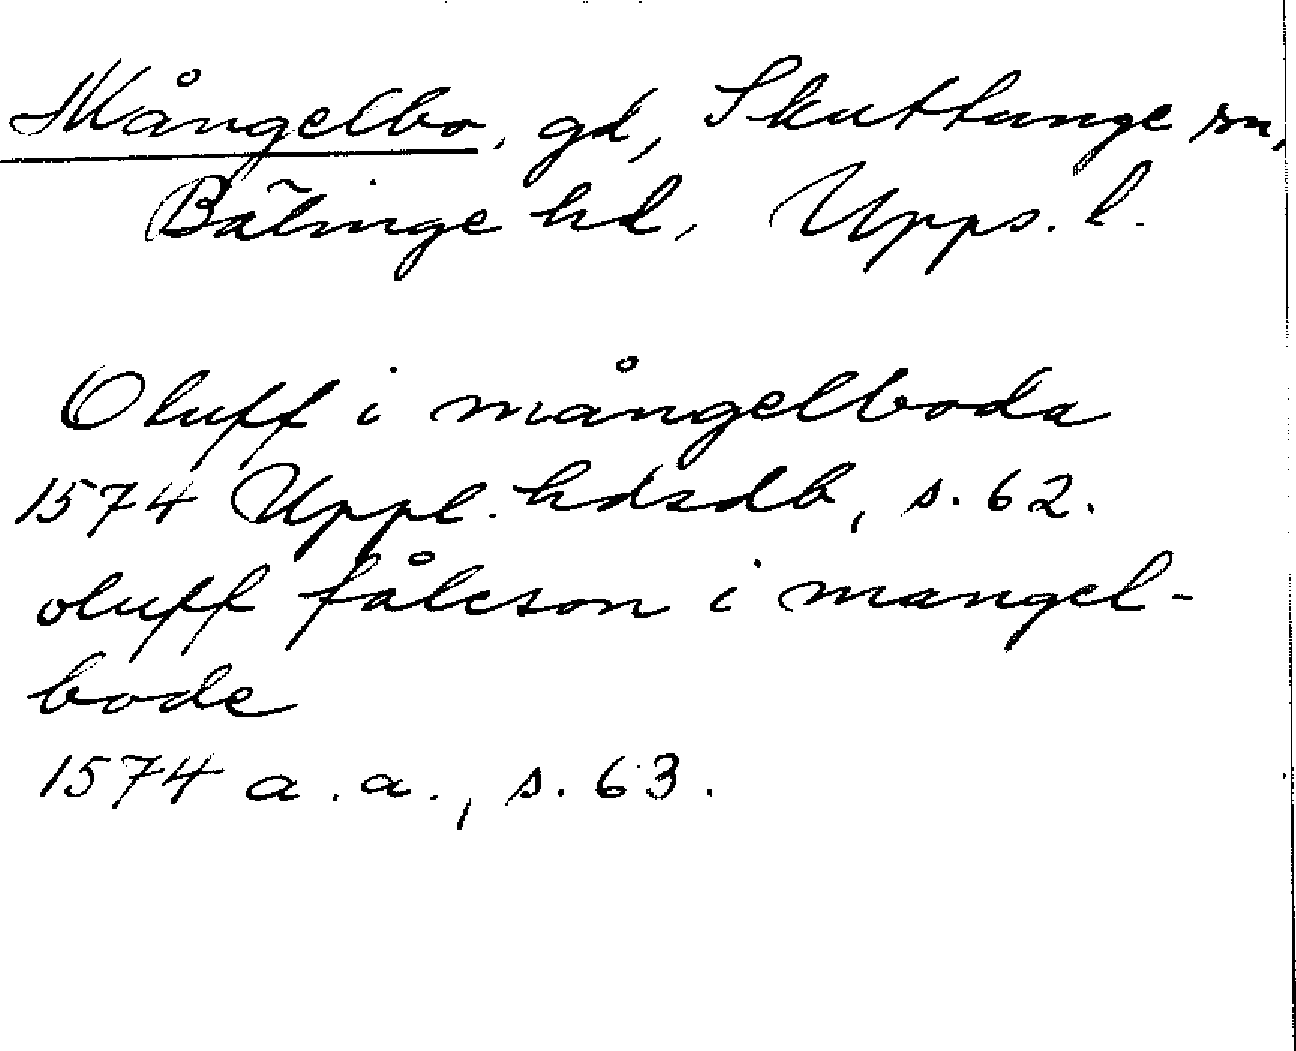 Mångelbo, gd, Skuttunge sn,
Bälinge hd, Upps. l.
Oluff i mångelboda
1574 Uppl. hdsdb, s. 62.
oluff fålcson i mangel-
bode
1574 a.a., s. 63.